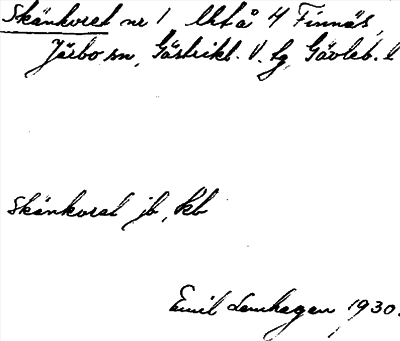 Skänkvret nr 1 Utå H Finnäs,
Järbo sn, Gästrikl. V. tg, Gävleb. l
Skänkvret jb, kb
Emil Lenhagen 1930.